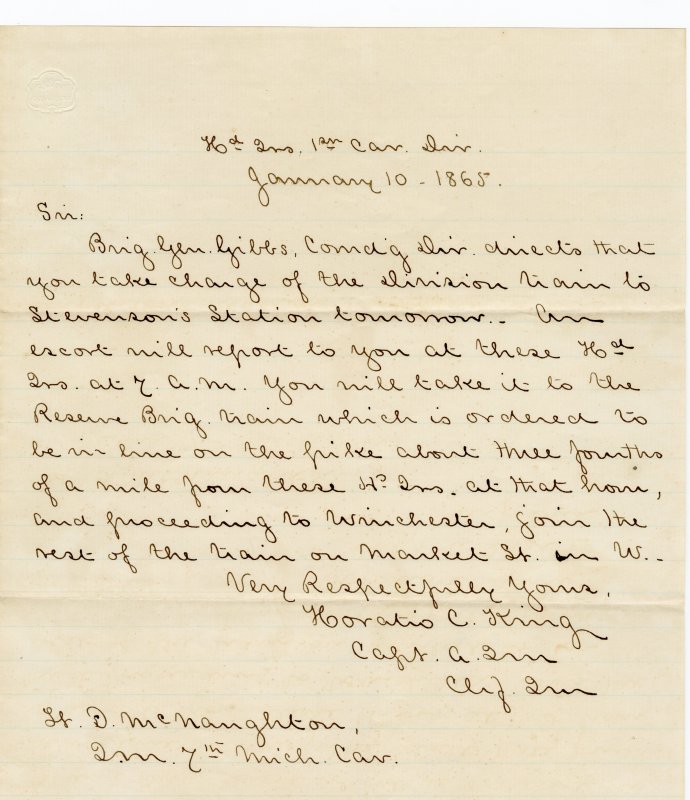 Hd Qrs. 1st Cav. Div.
January 10 - 1865.
Sir:
Brig. Gen. Gibbs, Comdg Div. directs that
you take charge of the Division train to
Stevenson's Station tomorrow.. An
escort will report to you at these Hd
Qrs. at 7 A.M. You will take it to the
Reserve Brig. train which is ordered to
be in line on the pike about three fourths
of a mile from these H. Qrs. at that hour,
and proceeding to Winchester, join the
rest of the train on Market St. in W..
Very Respectfully Yours,
Horatio C. King
Capt. A. Qm
Chf. Qm
Lt. D. McNaughton,
Q.m. 7th Mich. Cav.